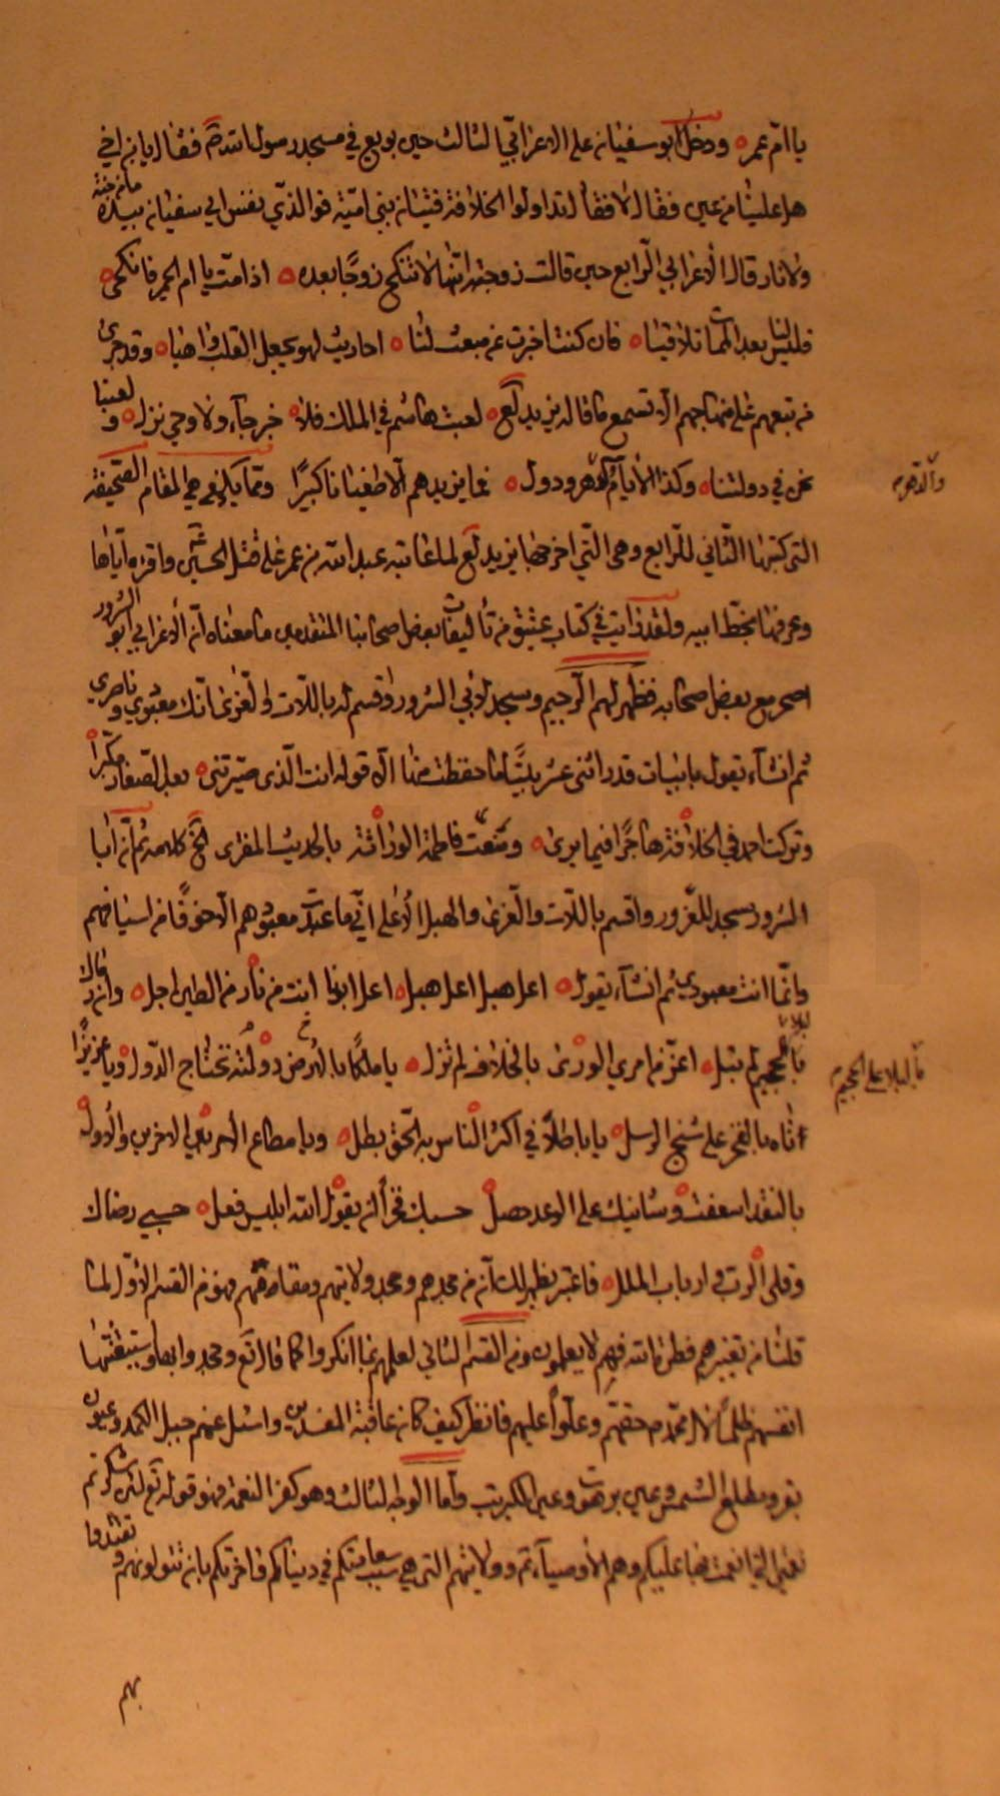 يا امّ عمر ودخل ابو سفيان على الاعرابي الثالث حين بويع في مسجد رسول الله ص فقال يابن اخي
هل علينا من عين فقال لا فقال تداولوا الخلافة فتيان بني اميّة فوالذي نفس ابي سفيان بيده ما من جنة
ولا نار قال الاعرابي الرابع حين قالت زوجته انها لا تنكح زوجًا بعده اذا مت يا ام الحمير فانكحي
فليس لنا بعد الممات تلاقيا فان كنت اخبرت عن مبعث لنا احاديث لهو يجعل القلب واهيا وقد جرى
من تبعهم على منهاجهم الا تسمع ما قاله يزيد لع لعبت هاشم في الملك فلا خبر جاء ولا وحي نزل و لعبنا
نحن في دولتنا وكذا الأيام والدهر دول فما يزيدهم الا طغيانا كبيرًا وممّا في المقام الصحيفة
والدّهر
التي كتبها الثاني للرابع وهي التي اخرجها يزيد لع لما عاتبه عبد الله بن عمر على قتل الحسين ع واقره اياها
وعرفها بخط ابيه ولقد رايت في كتاب عتيق من تأليفات بعض اصحابنا المتقدمين ما معناه انّ الاعرابي ابو الشرور
اصحر مع بعض اصحابه فظهر لهم الرجيم وسجد لابي الشرور واقسم له باللّات والعزى انك معبودي وناصري
ثم انشاء يقول بابيات قدر اثنى عشر بيتًا ما حفظت منها الا قوله انت الذي صيّرتني بعد الصغار مكبّرا
وتركت احمد في الخلافة هاجرًا فيما يرى ومنعت فاطمة الوراثة بالحديث المفترى الخ كلامه ثم انّ ابا
الشرور سجد للغرور واقسم باللّات والعزى والهبل الاعلى انّي ما عبدت معبودهم الا خوفًا من اسيافهم
وانّما انت معبودي ثم انشاء يقول اعل هبل اعل هبل اعل ابونا انت من نار من الطين اجل وان ذاك
لم يتبل اعتزّ من امري الورى بالخلاف لم تزل يا ملكًا بالارض دولته تحتاج الدول ويا عزيزًا
بالبلا على الجحيم
تاه بالفخر على نهج الرسل يا باطلاً في اكثر الناس به الحق بطل ويا مطاع الامر في الاخرين والأول
بالنقد اسعفت وشانيك على الوعد حصل حسبك فخرًا ان يقول الله ابليس فعل حسبي رضاك
وقل الرب في ارباب الملل فاعتبر يظهر لك انّ من جحدهم وجحد ولايتهم ومقامهم فهو من القسم الأول لما
قلنا من تغييرهم فطرة الله فهم لا يعلمون ومن القسم الثاني لعلمهم بما انكروا كما قال تع وجحدوا بها واستيقنتها
انفسهم ظلمًا لال محمد حقهم وعلوًا عليهم فانظر كيف كان عاقبة المفسدين واسئل عنهم جبل الكمد وعيون
بقر ومطلع الشمس وعين برهوت وعين الكبريت وامّا الوجه الثالث وهو كفر النعمة فهو قوله تع لئن شكرتم
نعمتي التي انعمت بها عليكم وهم الأوصياء ثم وولايتهم التي هي سبب سعادتكم في دنياكم واخرتكم بان تتولونهم وتقتدوا
بهم